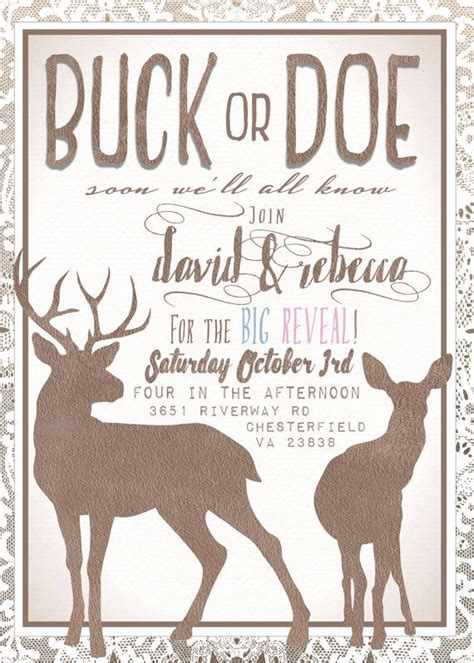 BUCK OR DOE
soon we'll all know
JOIN
david & rebecca
FOR THE BIG REVEAL!
Saturday October 3rd
FOUR IN THE AFTERNOON
3651 RIVERWAY RD
CHESTERFIELD
VA 23838